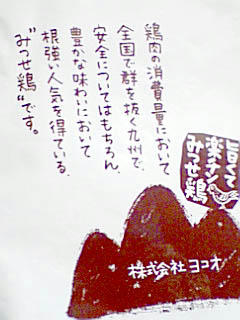 鶏肉の消費量において
全国で群を抜く九州で、
安全についてはもちろん、
豊かな味わいにおいて
根強い人気を得ている、
"みつせ鶏"です。
旨くて
楽チン!
みつせ鶏
株式会社ヨコオ